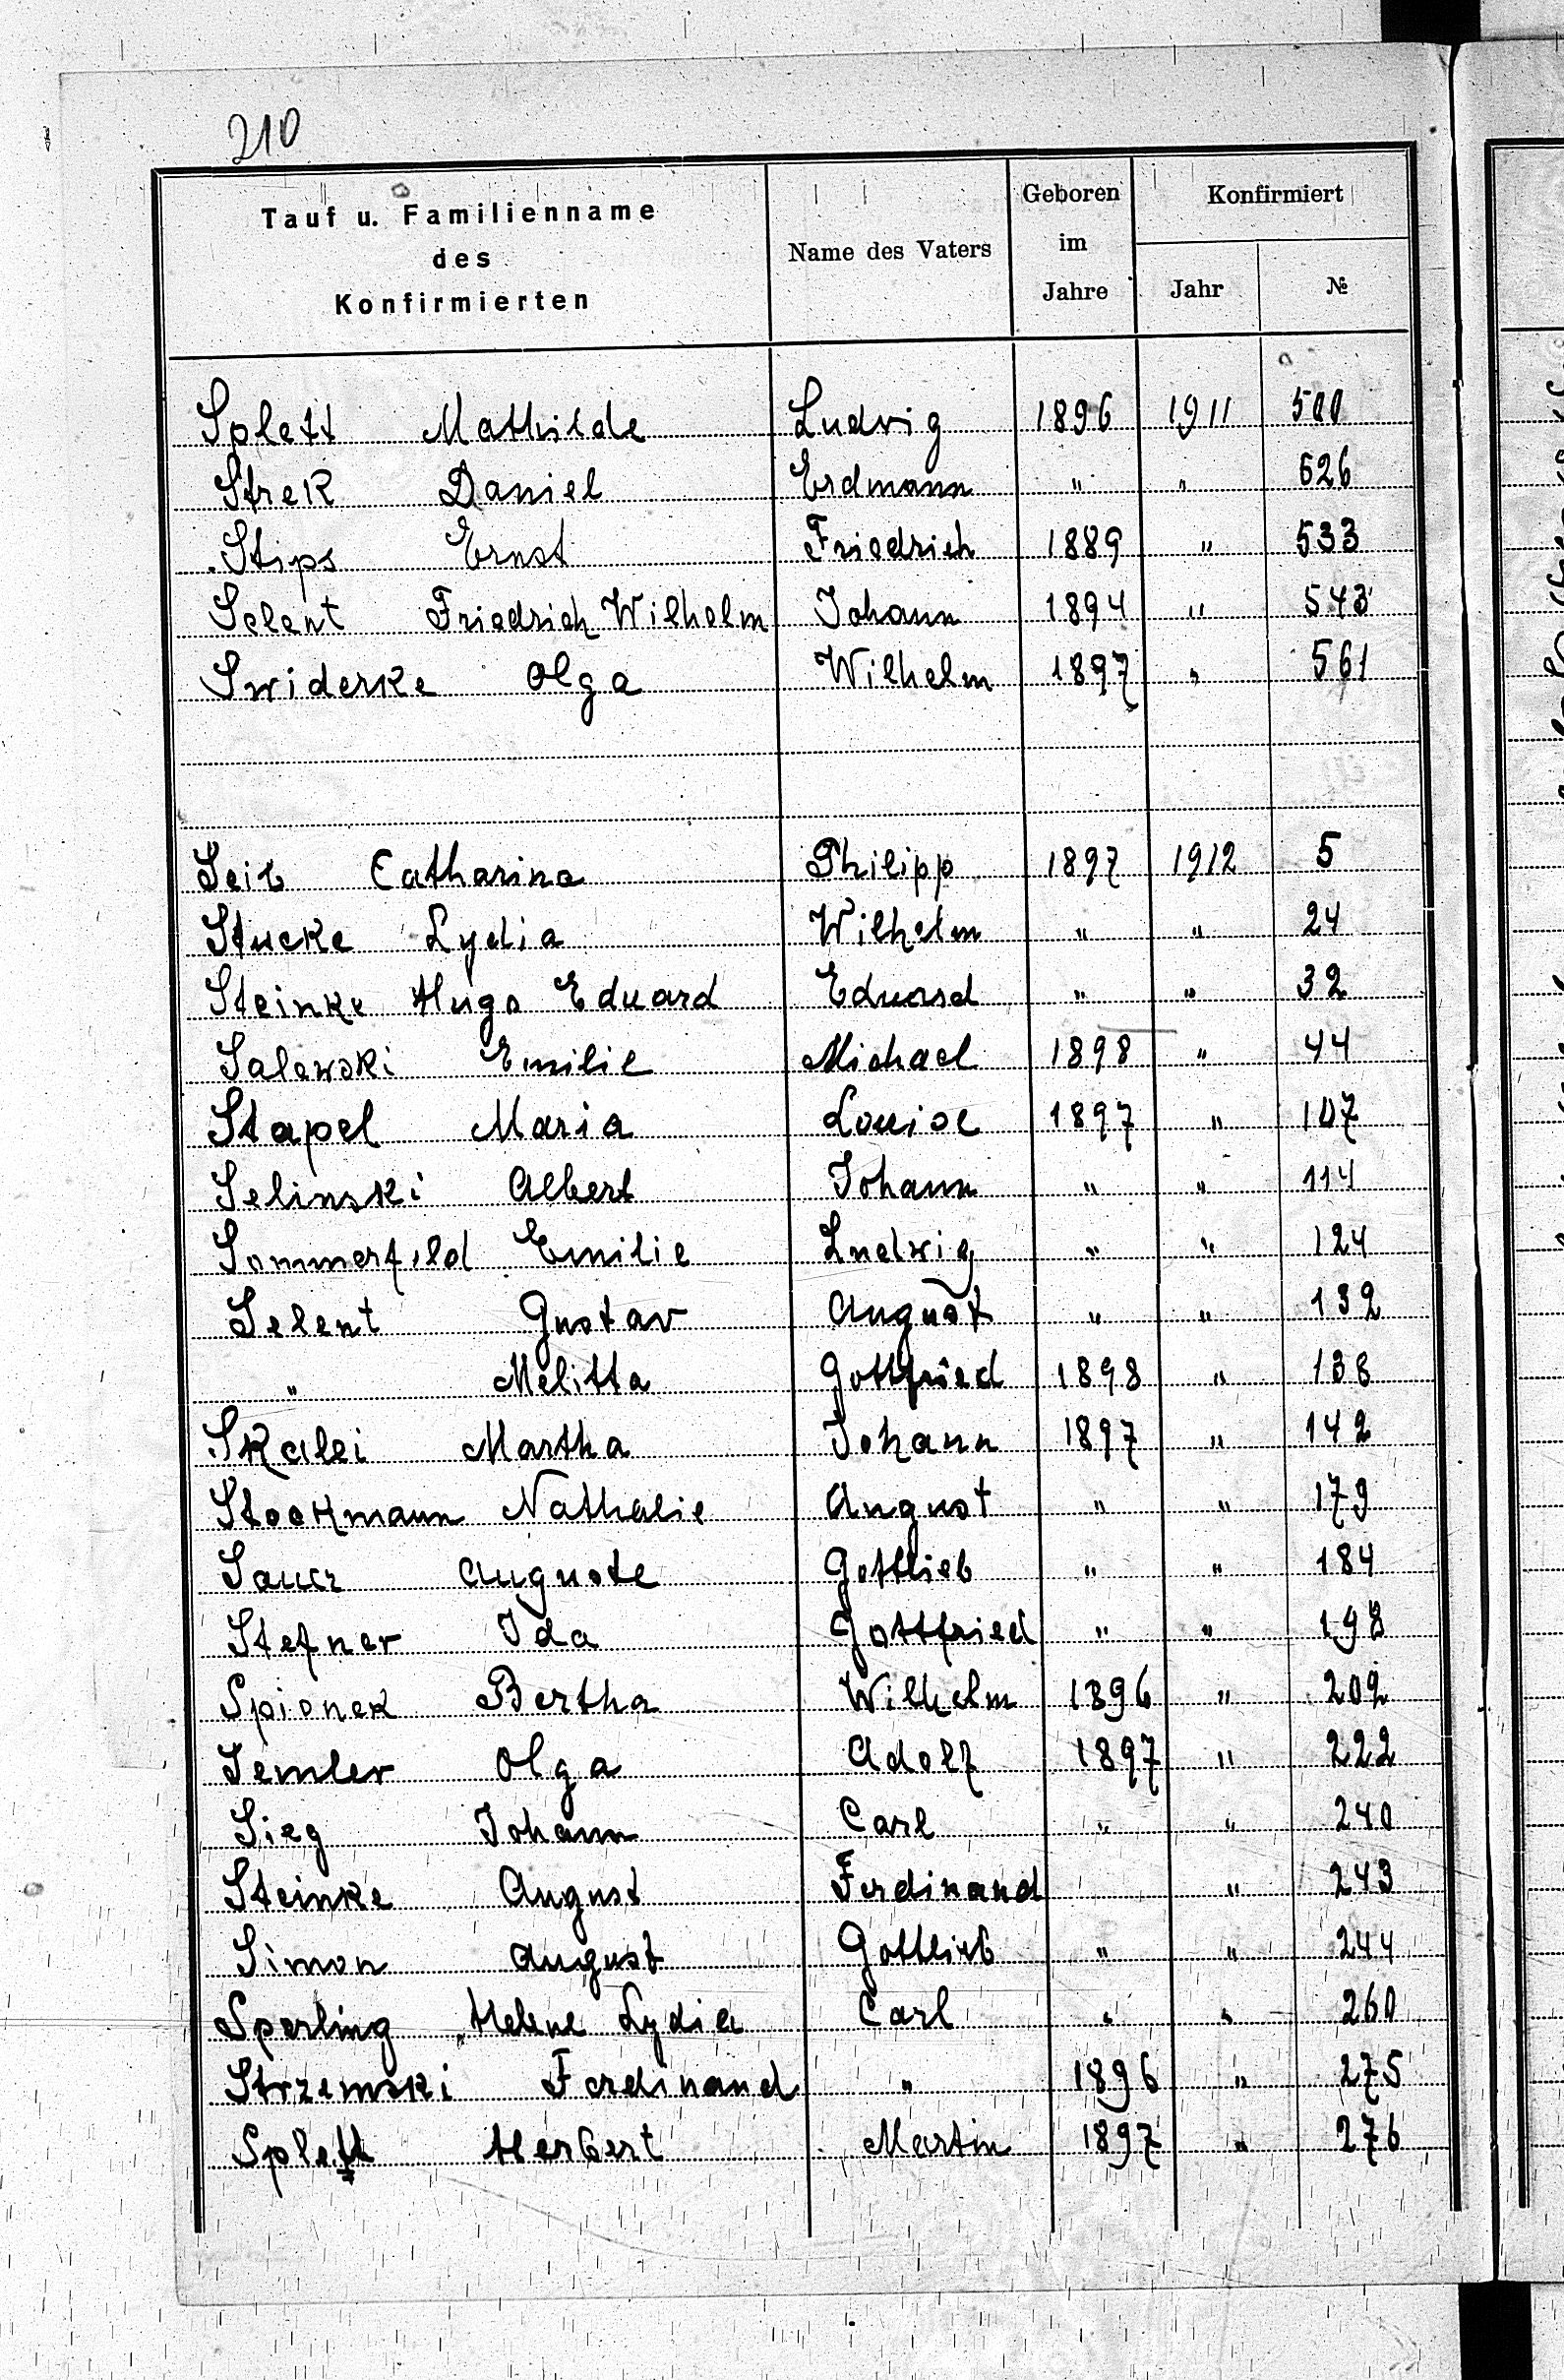 210
Tauf u. Familienname des Konfirmierten | Name des Vaters | Geboren im Jahre | Konfirmiert Jahr | №
Splett Mathilde Ludwig 1896 1911 500
Strek Daniel Erdmann " " 526
Stips Ernst Friedrich 1889 " 533
Selent Friedrich Wilhelm Johann 1894 " 543
Swiderke Olga Wilhelm 1897 " 561
Seib Catharina Philipp 1897 1912 5
Stucke Lydia Wilhelm " " 24
Steinke Hugo Eduard Eduard " " 32
Salewski Emilie Michael 1898 " 44
Stapel Maria Louise 1897 " 107
Selinski Albert Johann " " 114
Sommerfeld Emilie Ludwig " " 124
Selent Gustav August " " 132
" Melitta Gottfried 1898 " 138
Skalei Martha Johann 1897 " 142
Stockmann Nathalie August " " 179
Sauer Auguste Gottlieb " " 184
Stefner Ida Gottfried " " 198
Spionek Bertha Wilhelm 1896 " 202
Semler Olga Adolf 1897 " 222
Sieg Johann Carl " " 240
Steinke August Ferdinand " 243
Simon August Gottlieb " " 244
Sperling Helene Lydia Carl " " 260
Strzemski Ferdinand " 1896 " 275
Splett Herbert Martin 1897 " 276